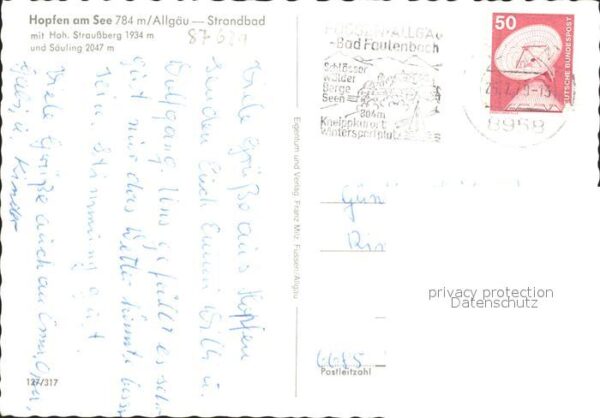 Hopfen am See 784 m/Allgäu — Strandbad
mit Hoh. Straußberg 1934 m
und Säuling 2047 m
87629
Viele Grüße aus Hopfen
senden Euch Willi u.
Wolfgang. Uns gefällt es sehr
gut nur das Wetter könnte besser
sein Stimmung gut!
Viele Grüße auch an
Kinder
127/317
Eigentum und Verlag Franz Milz Füssen/Allgäu
FÜSSEN-ALLGÄU
-Bad Faulenbach
Schlösser
Wälder
Berge
Seen
804m
Kneippkurort
Wintersportplatz
50
DEUTSCHE BUNDESPOST
8958
6685
Postleitzahl
privacy protection
Datenschutz